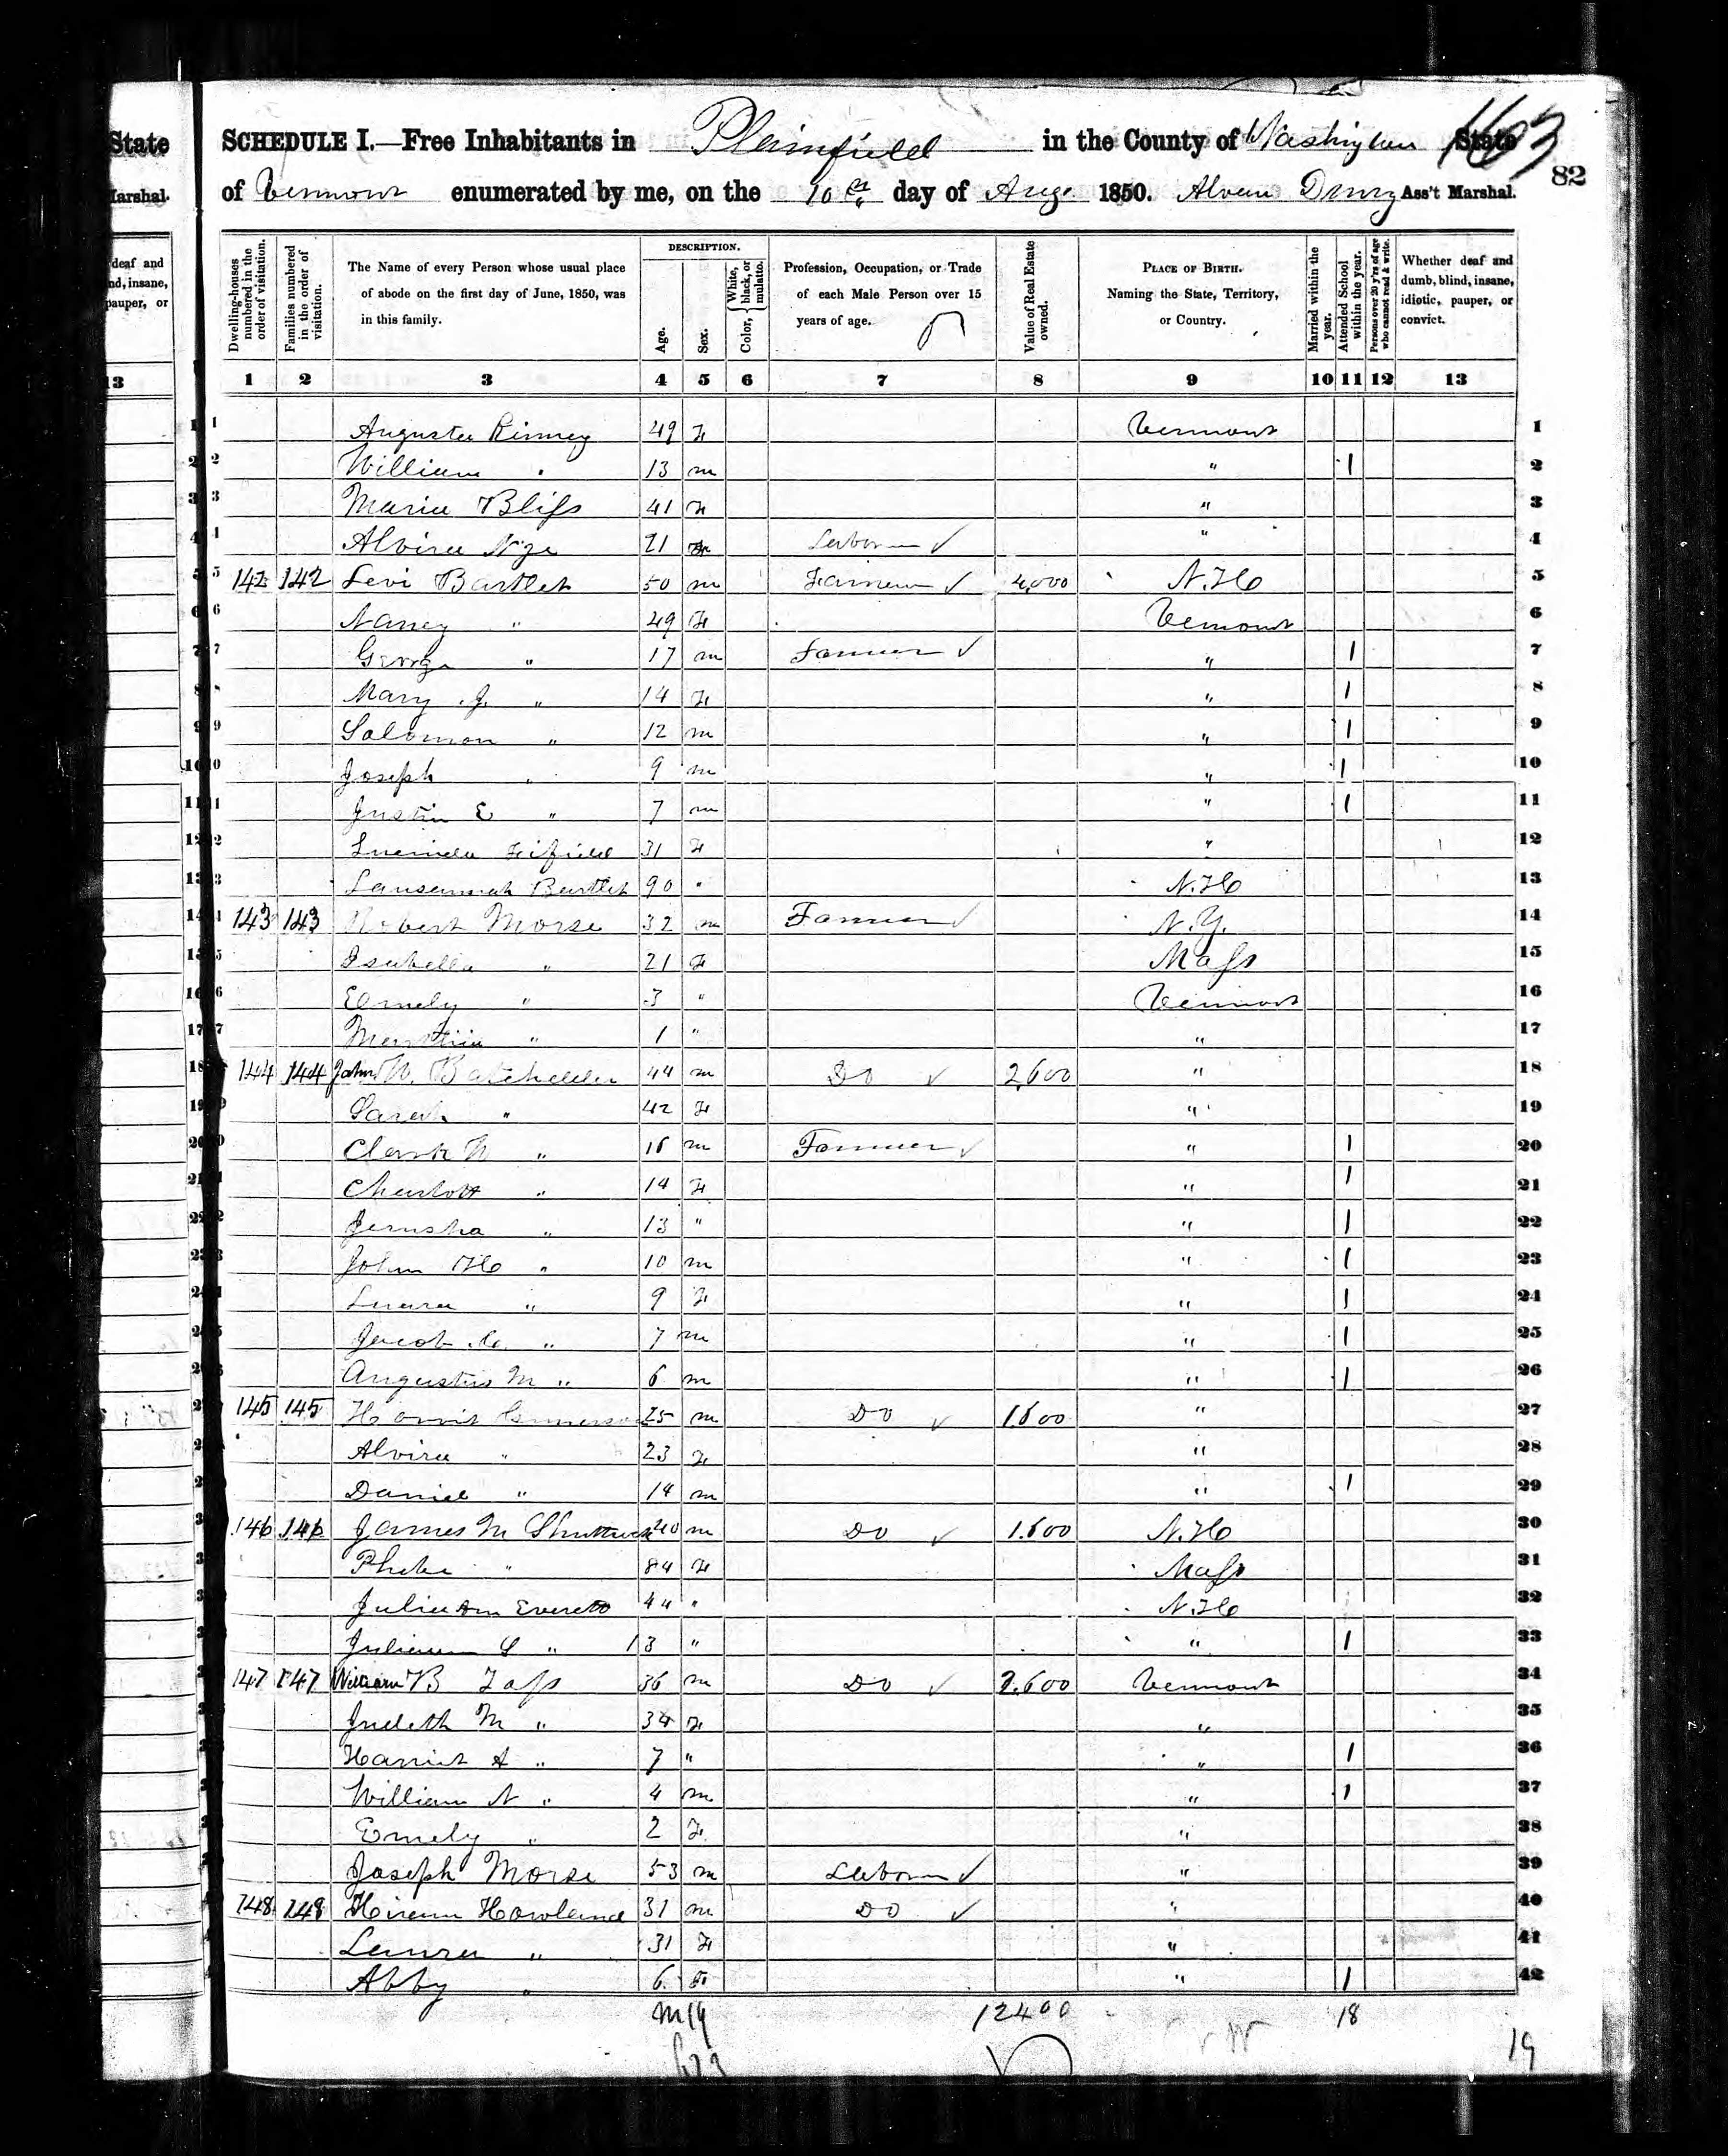 State
Marshal.
deaf and
nd, insane,
pauper, or
13
163
82
SCHEDULE I.—Free Inhabitants in Plainfield in the County of Washington State
of Vermont enumerated by me, on the 10th day of Aug. 1850. Alvin Drury Ass't Marshal.
Dwelling-houses numbered in the order of visitation.
Families numbered in the order of visitation.
The Name of every Person whose usual place of abode on the first day of June, 1850, was in this family.
DESCRIPTION.
Age.
Sex.
Color, { White, black, or mulatto.
Profession, Occupation, or Trade of each Male Person over 15 years of age.
Value of Real Estate owned.
PLACE OF BIRTH. Naming the State, Territory, or Country.
Married within the year.
Attended School within the year.
Persons over 20 y'rs of age who cannot read & write.
Whether deaf and dumb, blind, insane, idiotic, pauper, or convict.
1 2 3 4 5 6 7 8 9 10 11 12 13
1 Augusta Kinney 49 F Vermont 1
2 William " 13 m " 1 2
3 Maria Bliss 41 F " 3
4 Alvira Nye 21 Laborer ✓ " 4
5 142 142 Levi Bartlet 50 m Farmer ✓ 4,000 N.H 5
6 Nancy " 49 F Vermont 6
7 George " 17 m Farmer ✓ " 1 7
8 Mary J. " 14 F " 1 8
9 Solomon " 12 m " 1 9
10 Joseph " 9 m " 1 10
11 Justin E " 7 m " 1 11
12 Lucinda Fifield 31 F " 12
13 Bartlet 90 " N.H 13
14 143 143 Robert Morse 32 m Farmer ✓ N.Y. 14
15 Isabella " 21 F Mass 15
16 Emely " 3 " Vermont 16
17 " 1 " " 17
18 144 144 John W. Batchelder 44 m Do ✓ 2,600 " 18
19 Sarah " 42 F " 19
20 Clark W " 16 m Farmer ✓ " 1 20
21 Charlott " 14 F " 1 21
22 Jerusha " 13 " " 1 22
23 John H " 10 m " 1 23
24 Luara " 9 F " 1 24
25 Jacob " 7 m " 1 25
26 Augustus M " 6 m " 1 26
27 145 145 Emmerson 25 m Do ✓ 1.600 " 27
28 Alvira " 23 F " 28
29 Daniel " 14 m " 1 29
30 146 146 James M Shattuck 40 m Do ✓ 1.600 N.H 30
31 Phebe " 84 F Mass 31
32 Julia Ann Everett 44 " N.H 32
33 " 13 " " 1 33
34 147 147 William B Tass 36 m Do ✓ 2.600 Vermont 34
35 Judeth M " 34 F " 35
36 Harriet A " 7 " " 1 36
37 William N " 4 m " 1 37
38 Emely " 2 F " 38
39 Joseph Morse 53 m Laborer ✓ " 39
40 148 148 Hiram Howland 31 m Do ✓ " 40
41 Laura " 31 F " 41
42 Abby " 6 F " 1 42
m 19 12400 18
19